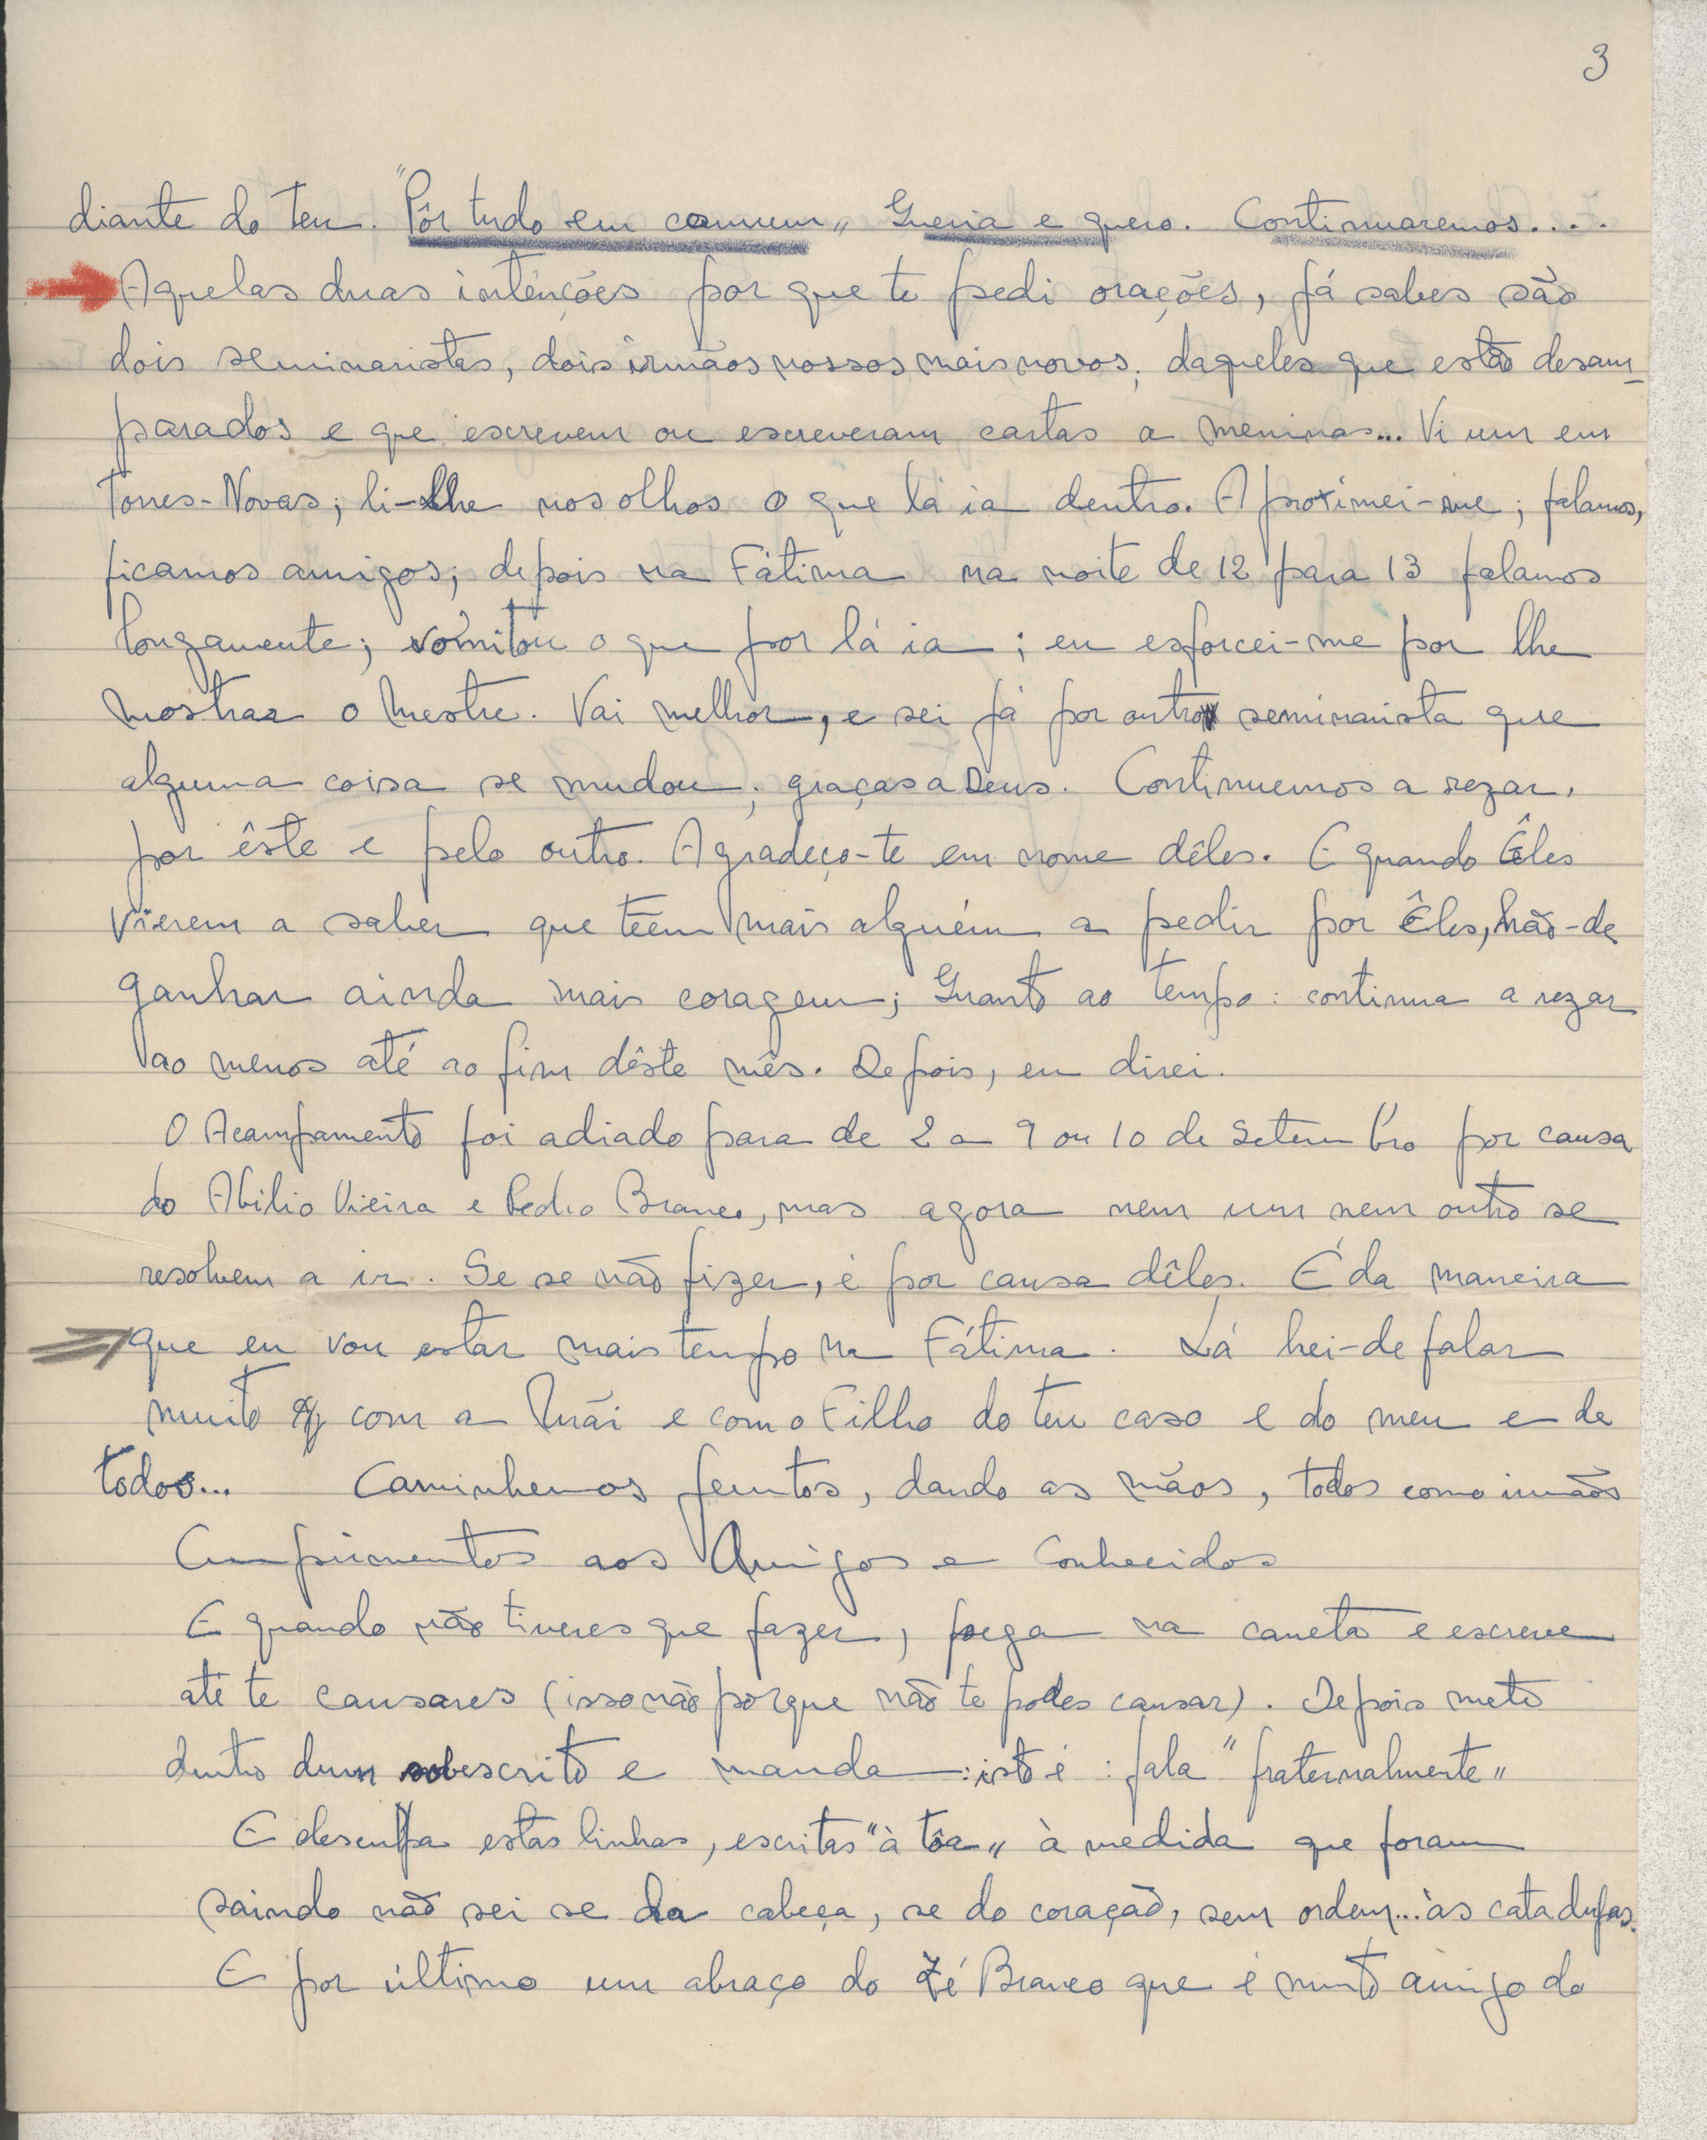 3
diante do teu. "Pôr tudo em comum„ Queria e quero. Continuaremos....
Aquelas duas intenções por que te pedi orações, já sabes são
dois seminaristas, dois irmãos nossos mais novos, daqueles que estão desam-
parados e que escrevem ou escreveram cartas a meninas... Vi um em
Torres-Novas; li-lhe nos olhos o que lá ia dentro. Aproximei-me; falamos,
ficamos amigos; depois na Fátima na noite de 12 para 13 falamos
longamente; vomitou o que por lá ia; eu esforcei-me por lhe
mostrar o Mestre. Vai melhor, e sei já por outro seminarista que
alguma coisa se mudou; graças a Deus. Continuemos a rezar,
por êste e pelo outro. Agradeço-te em nome dêles. E quando Êles
vierem a saber que teem mais alguém a pedir por Êles, hão-de
ganhar ainda mais coragem; Quanto ao tempo: continua a rezar
ao menos até ao fim dêste mês. Depois, eu direi.
O Acampamento foi adiado para de 2 a 9 ou 10 de Setembro por causa
do Abilio Vieira e Pedro Branco, mas agora nem um nem outro se
resolvem a ir. Se se não fizer, é por causa dêles. É da maneira
que eu vou estar mais tempo na Fátima. Lá hei-de falar
muito com a Mãi e com o Filho do teu caso e do meu e de
todos... Caminhemos juntos, dando as mãos, todos como irmãos
Cumprimentos aos Amigos e Conhecidos
E quando não tiveres que fazer, pega na caneta e escreve
até te cansares (isso não porque não te podes cansar). Depois mete
dentro dum sobescrito e manda: isto é: fala "fraternalmente„
E desculpa estas linhas, escritas "à tôa„ à medida que foram
saindo não sei se da cabeça, se do coração, sem ordem... às catadupas.
E por último um abraço do Zé Branco que é muito amigo do